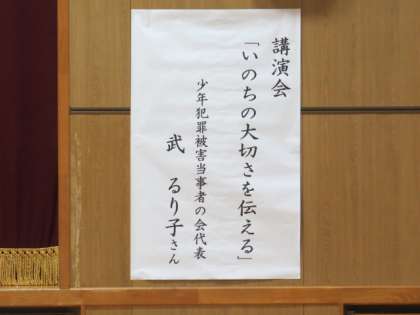 講演会
「いのちの大切さを伝える」
少年犯罪被害当事者の会代表
武 るり子さん